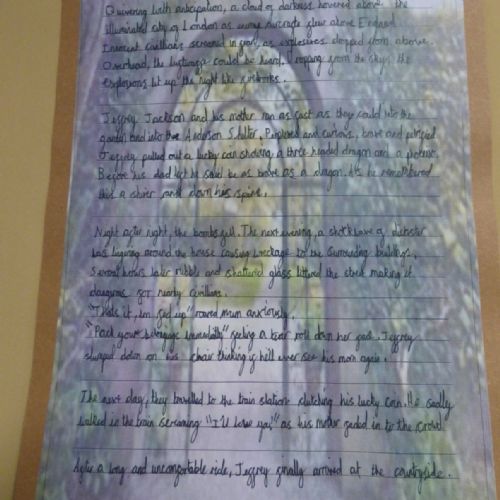 Quivering with anticipation, a cloud of darkness hovered above the
illuminated city of London as enemy aircrafts flew above England
Innocent civillians screamed in fear, as explosives dropped from above.
Overhead, the luftwaffe could be heard. from the skys the
explosions lit up the night like fireworks.
Jeffrey Jackson and his mother ran as fast as they could into the
garden and into the Anderson Shelter. Perplexed and curious, brave and petrified
Jeffrey pulled out a lucky coin showing a three headed dragon and a phoenix.
Before his dad left he said be as brave as a dragon. As he remembered
this a shiver ran down his spine.
Night after night, the bombs fell. The next evening, a shockwave of
was lingering around the house causing wreckage to the surrounding buildings.
Several hours later rubble and shattered glass littered the street making it
dangerous for nearby civillians.
"That's it, im fed up" roared mum anxiously.
"Pack your belongings immediatly" feeling a tear roll down her face. Jeffrey
slumped down on his chair thinking if he'll ever see his mom again.
The next day, they travelled to the train station clutching his lucky coin. He sadly
walked in the train screaming "I'll love you" as his mother faded in to the crowd
After a long and uncomfortable ride, Jeffrey finally arrived at the countryside.